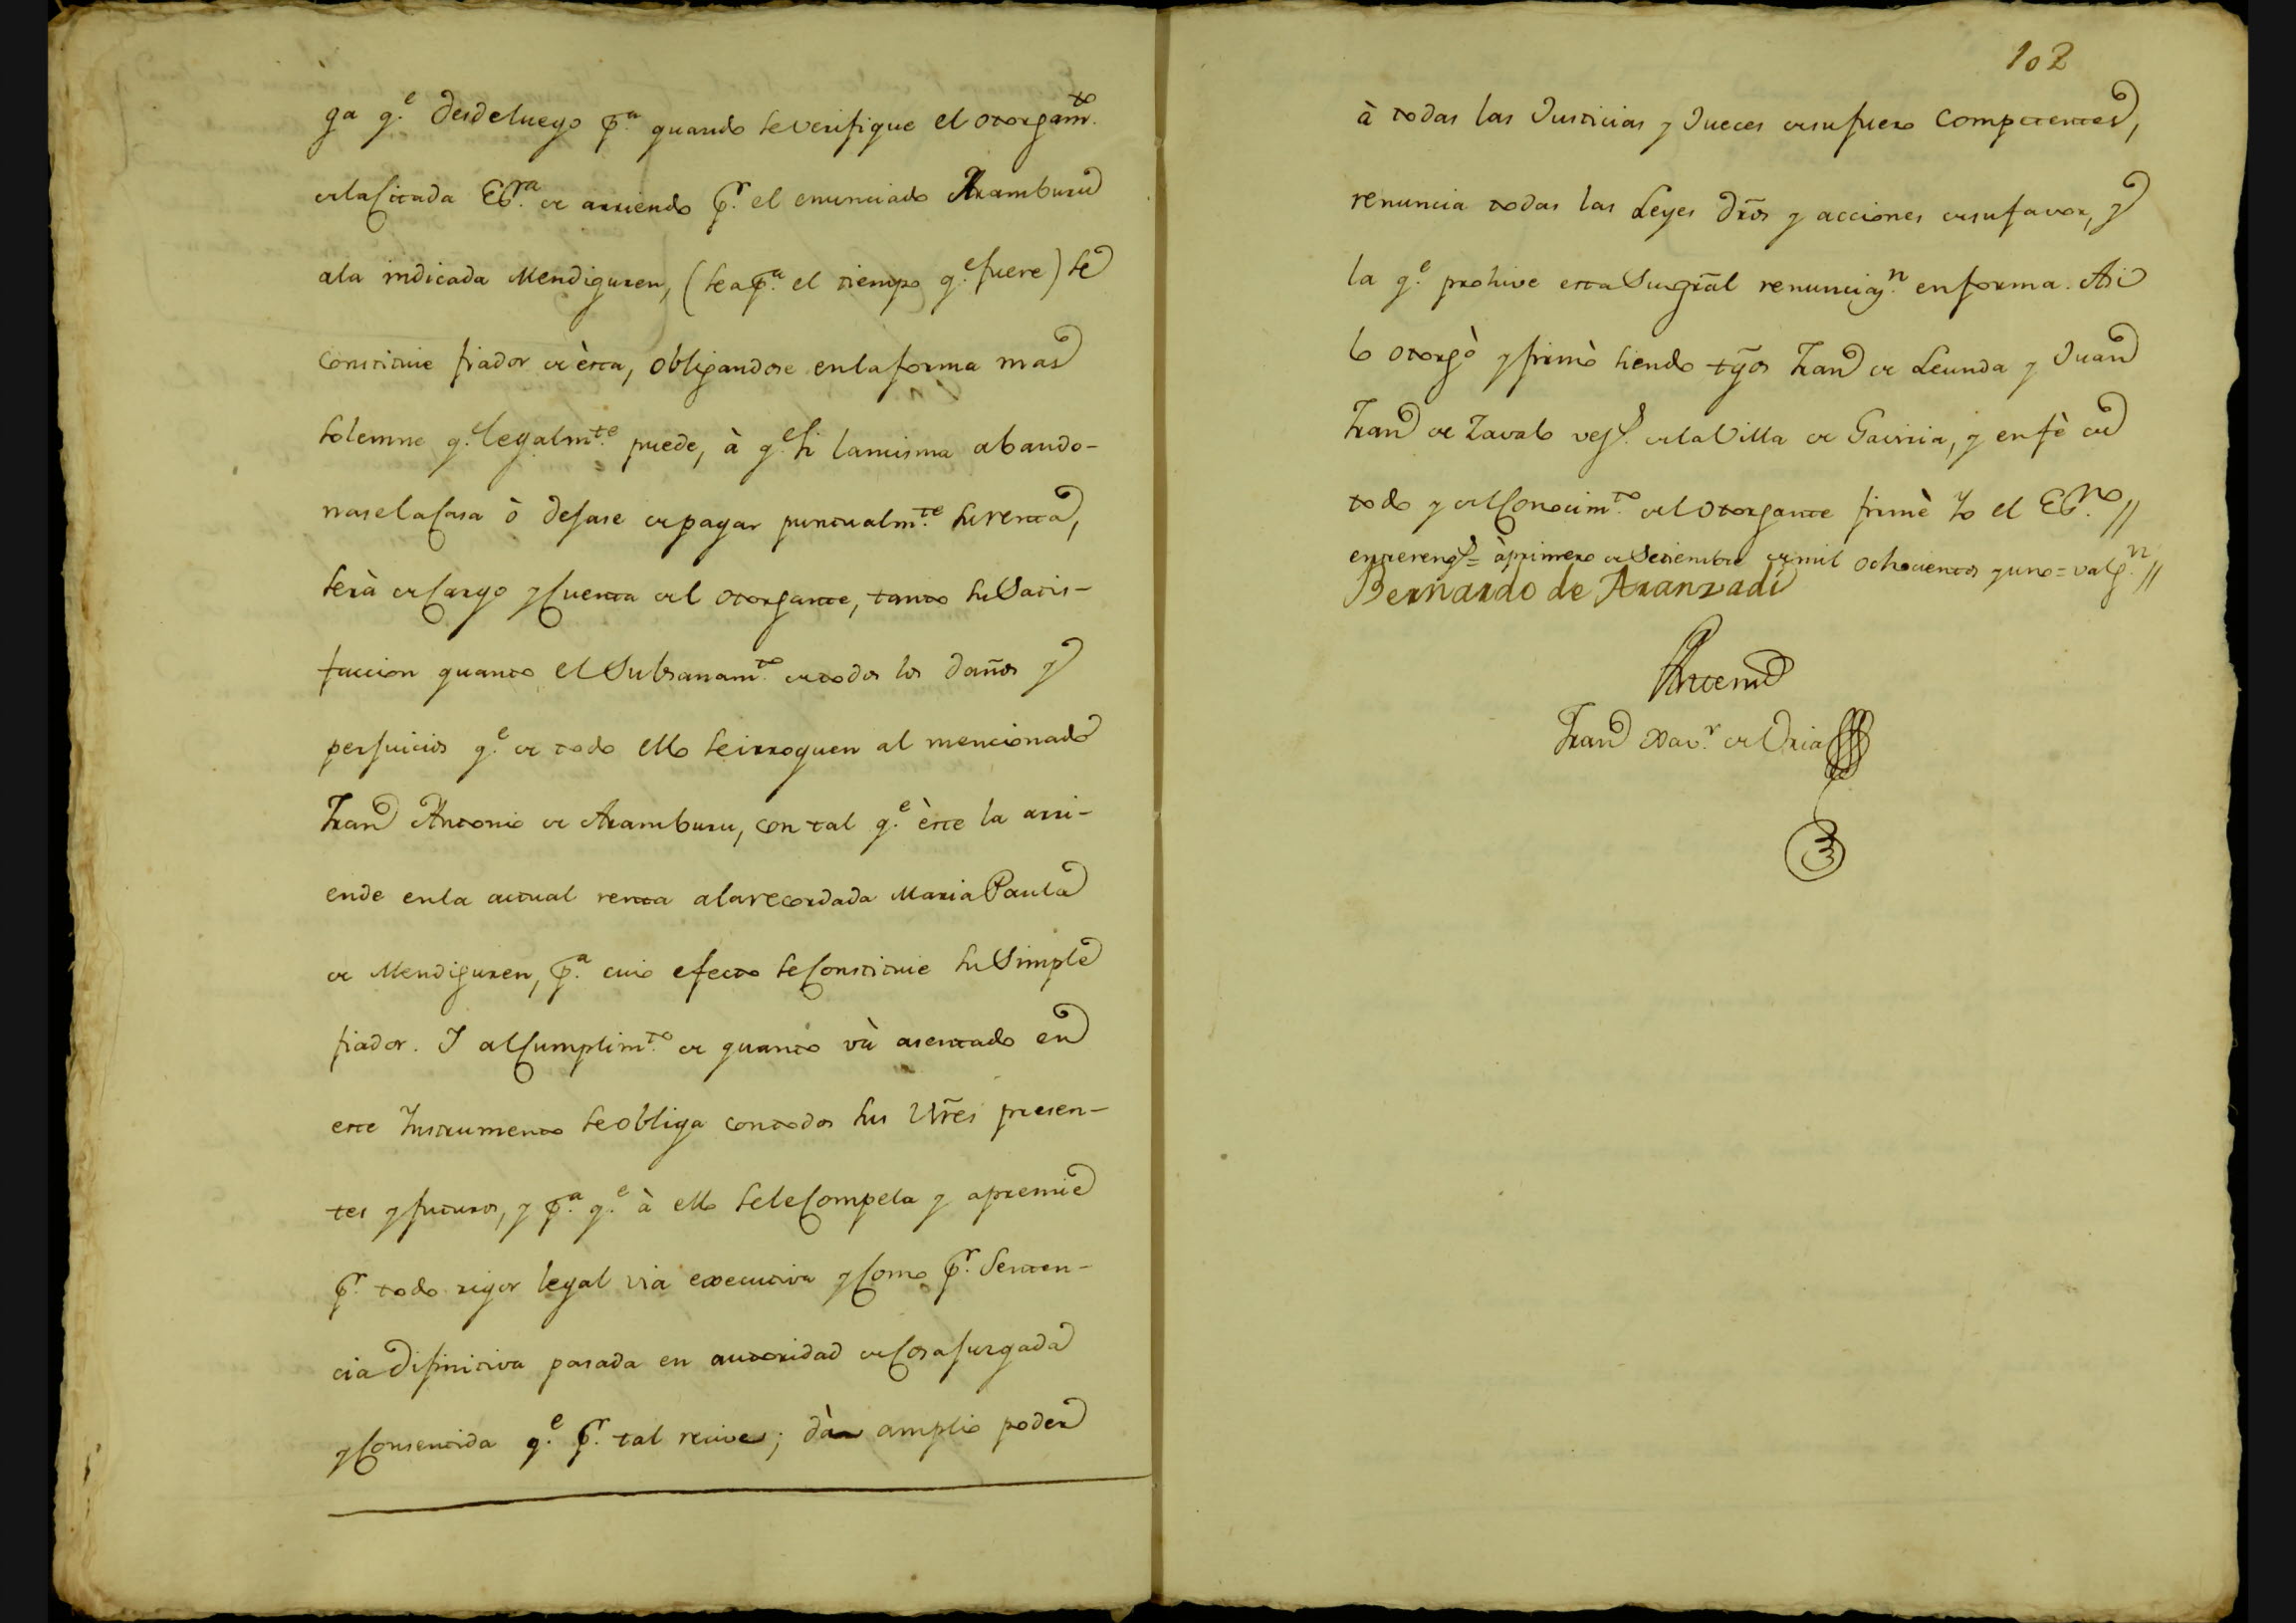 ga q.e desde luego p.a quando se verifique el otorgam.to
de la citada Es.ra de arriendo p.r el enunciado Aramburu
a la indicada Mendiguren, (sea p.a el tiempo q.e fuere) se
constituie fiador de èsta, obligandose en la forma mas
solemne q.e legalm.te puede, à q.e si la misma abando-
nase la casa ò dejase de pagar puntualm.te su renta,
serà de cargo y cuenta del otorgante, tanto su satis-
faccion quanto el subsanam.to de todos los daños y
perjuicios q.e de todo ello se irroguen al mencionado
Fran.co Antonio de Aramburu, con tal q.e èste la arri-
ende en la actual renta a la recordada Maria Paula
de Mendiguren, p.a cuio efecto se constituie su simple
fiador. Y al cumplim.to de quanto và asentado en
este Instrumento se obliga con todos sus vñes presen-
tes y futuros, y p.a q.e à ello se le compela y apremie
p.r todo rigor legal via executiva y como p.r senten-
cia difinitiva pasada en autoridad de cosa juzgada
y consentida q.e p.r tal recive; dà amplio poder
102
à todas las Justicias y Jueces de su fuero competentes,
renuncia todas las Leyes dr̃os y acciones de su favor, y
la q.e prohive esta su gr̃al renunciaz.n en forma. Asi
lo otorgò y firmò siendo tg̃os Fran.co de Leunda y Juan
Fran.co de Zavalo vez.s de la Villa de Gaviria, y en fè de
todo y del conocim.to del otorgante firmè Yo el Es.no //
entrereng.s = à primero de Setiembre de mil ochocientos y uno = valg.n //
Bernardo de Aranzadi
Ante mi
Fran.co Xav.r de Oria